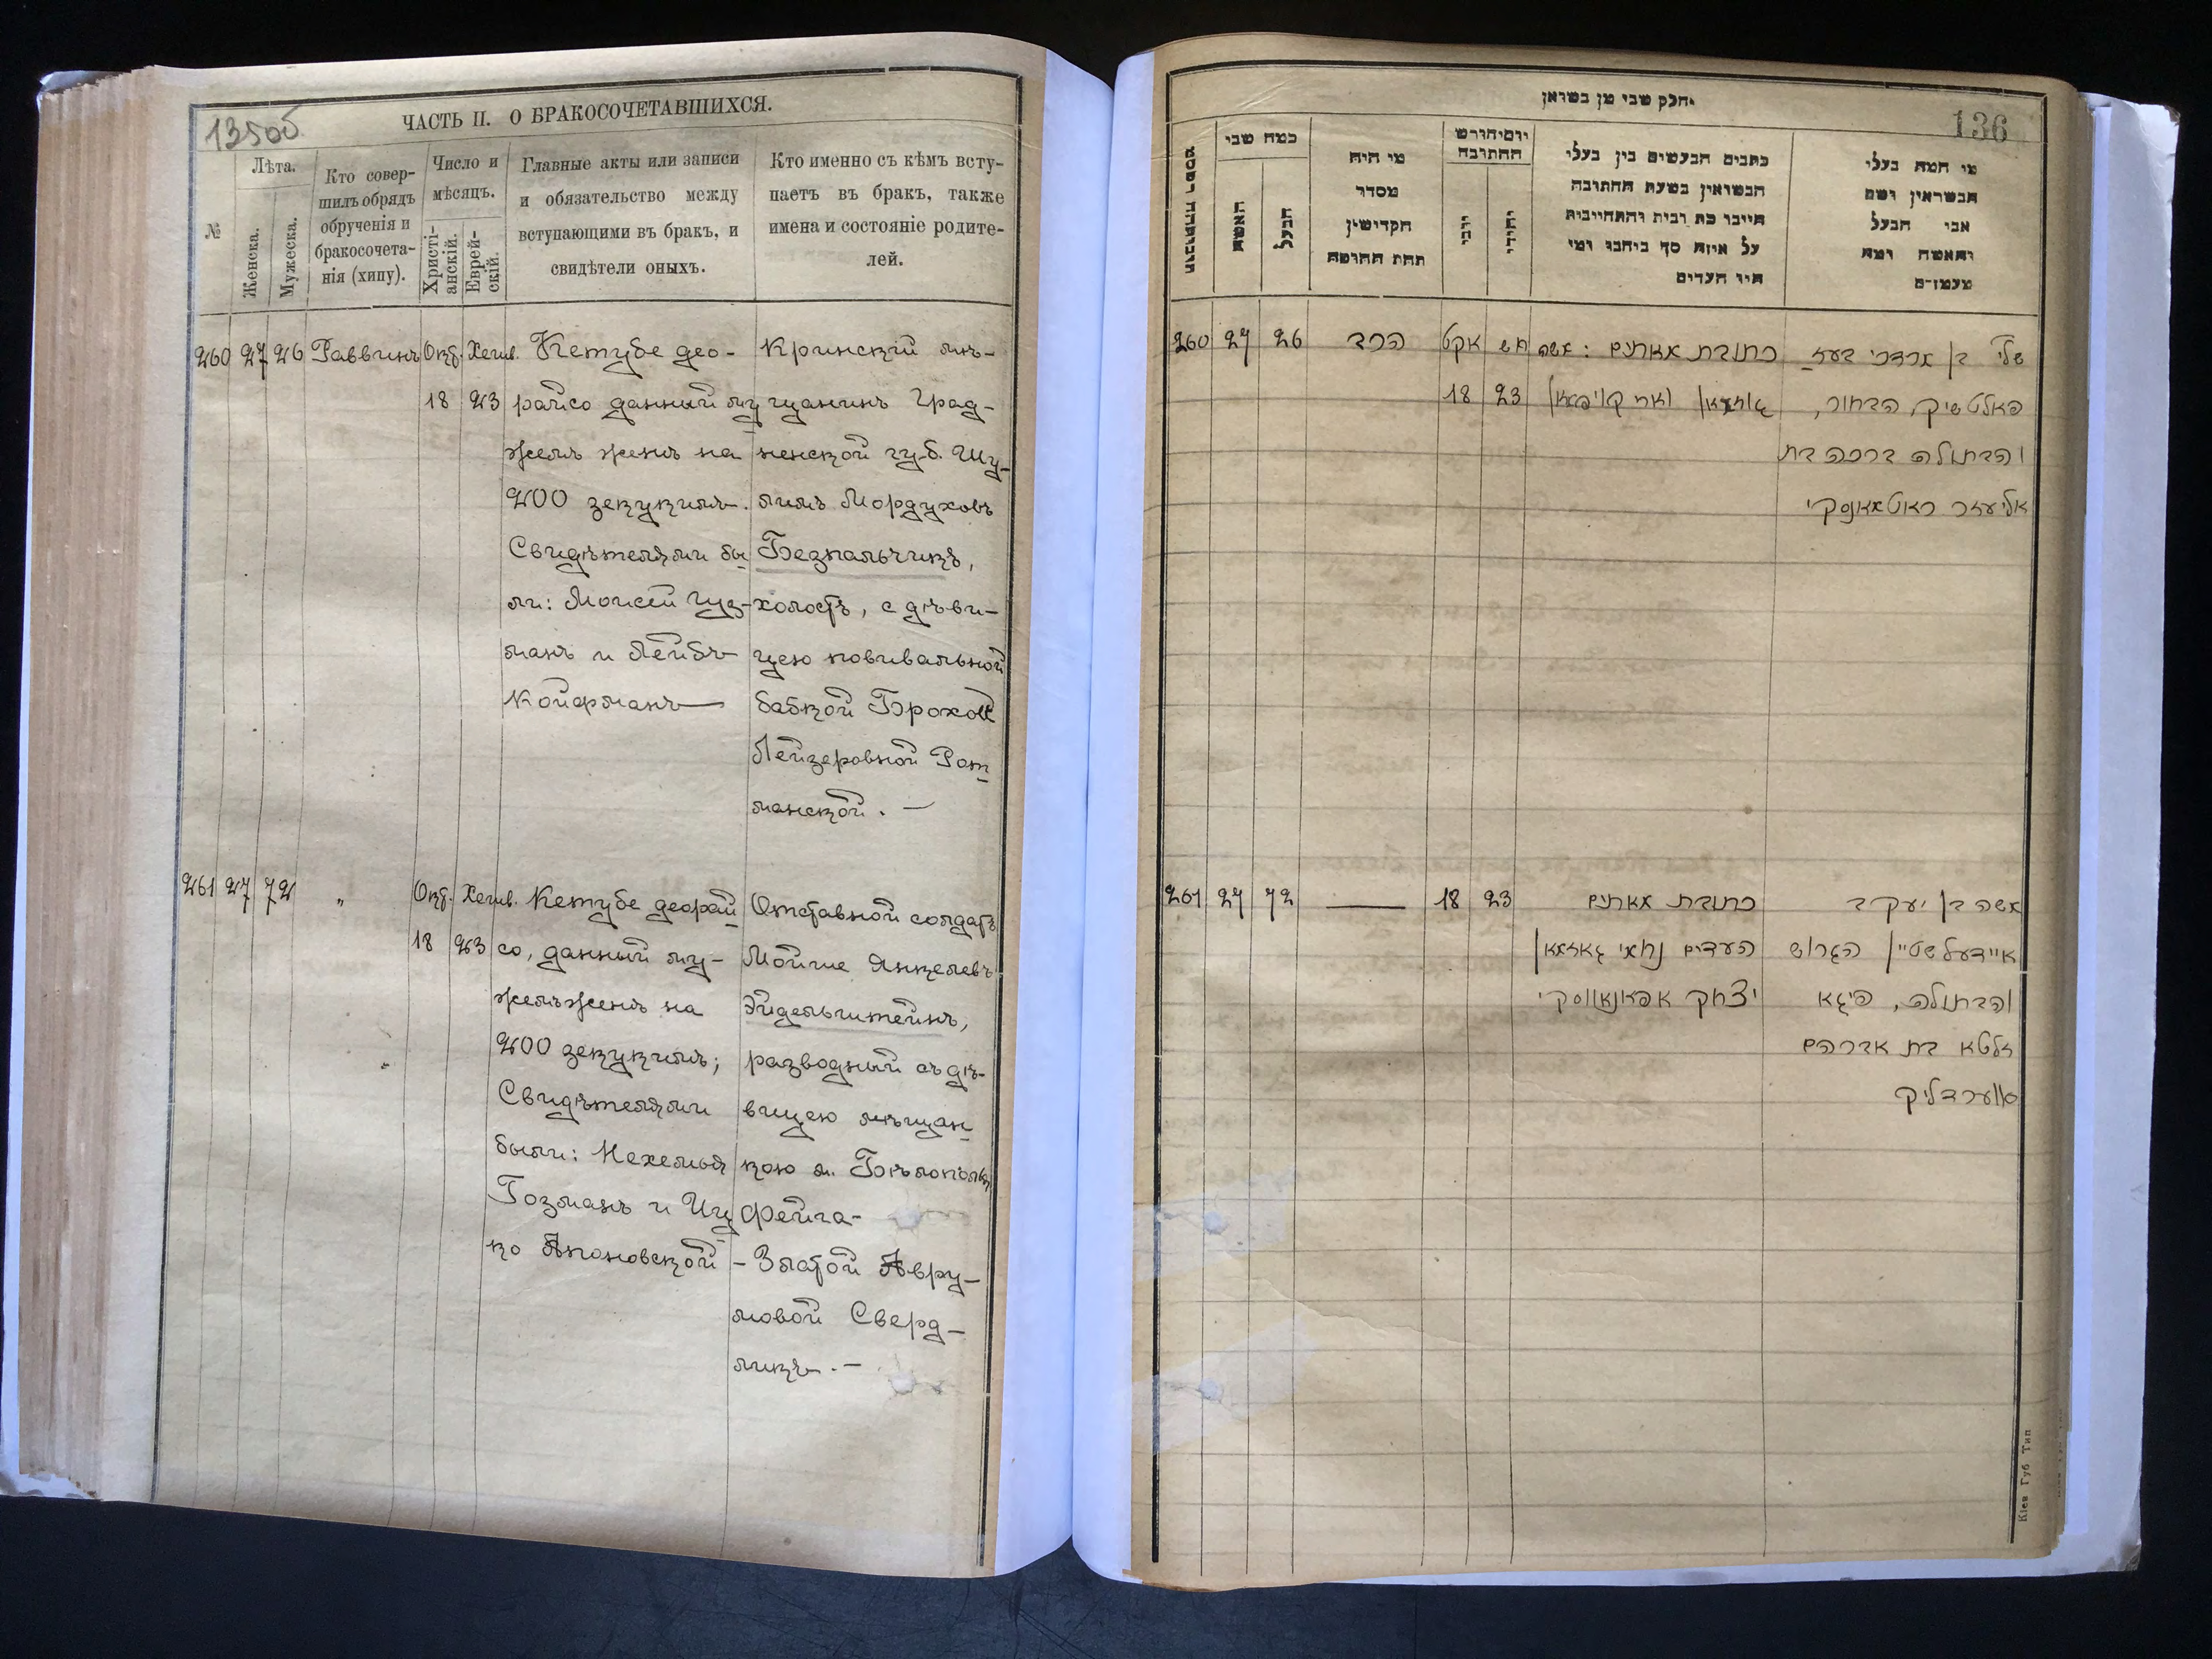 135об
ЧАСТЬ II. О БРАКОСОЧЕТАВШИХСЯ.
№
Лѣта.
Женска.
Мужеска.
Кто совер-
шилъ обрядъ
обрученія и
бракосочета-
нія (хипу).
Число и
мѣсяцъ.
Христі-
анскій.
Еврей-
скій.
Главные акты или записи
и обязательство между
вступающими въ бракъ, и
свидѣтели оныхъ.
Кто именно съ кѣмъ всту-
паетъ въ бракъ, также
имена и состояніе родите-
лей.
260 27 26 Раввинъ Окт. Хешв.
18 23
Кетубе део-
райсо данный му
жемъ женѣ на
200 зекукимъ.
Свидѣтелями бы
ли: Моисей Гуз-
манъ и Лейбъ
Койфманъ
Кринскій мѣ-
щанинъ Град-
ненской губ. Шу-
лимъ Мордуховъ
Безпальчикъ,
холостъ, с дѣви-
цею повивальной
бабкой Брохой
Лейзеровной Рот
манской. —
261 27 72 " Окт. Хешв.
18 23
Кетубе деорай
со, данный му-
жемъ женѣ на
200 зекукимъ;
Свидѣтелями
были: Нехемья
Гозманъ и Иц
ко Японовской
Отставной солдатъ
Мойше Янкелевъ
Эйдельштейнъ,
разводный съ дѣ-
вицею мѣщан
кою м. Бѣлополья
Фейга-
-Златой Авру-
мовой Сверд-
ликъ. —
136
חלק שני מן נשואין
כמה שני
האשה
הבעל
מי היה
מסדר
הקדישין
תחת החופה
יום וחורש
החתונה
יוני
יהודי
כתבים הנעשים בין בעלי
הנשואין בשעת החתונה
חייבו כת ובית והתחייבות
על איזה סך ביחבו ומי
היו העדים
מי המה בעלי
הנשואין ושם
אבי הבעל
והאשה ומה
מעמדם
260 27 26 הרב אקט חש
18 23
כתובת מאתים : משה
גוזמאן ואריה קויפמאן
שלו' בן מרדכי בעז
פאלטשיק, הבחור,
והבתולה ברכה בת
אליעזר ראטמאנסקי
261 27 72 — 18 23
כתובת מאתים
העדים נחמי' גאזמאן
יצחק אפאנאווסקי
משה בן יעקב
איידעלשטיין הגרוש
והבתולה, פיגא
זלטא בת אברהם
סווערדליק
Кіев Губ Тип